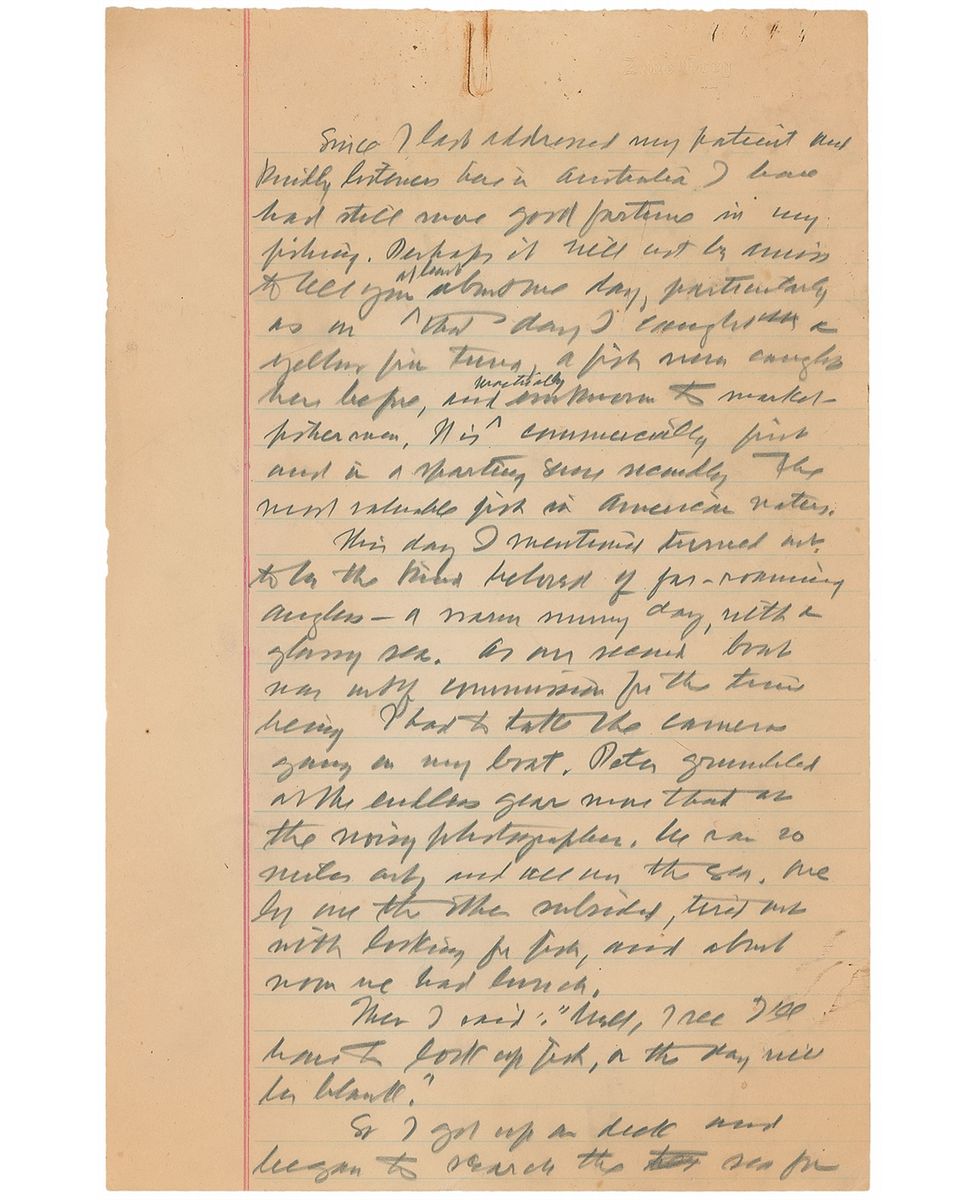 Zane Grey
Since I last addressed my patient and
kindly listeners here in Australia I have
had still more good fortune in my
fishing. Perhaps it will not be amiss
to tell you at least about one day, particularly
as on that day I caught a
yellow fin tuna, a fish never caught
here before, and practically unknown to market-
fishermen. It is commercially first
and in a sporting sense secondly the
most valuable fish in American waters.
This day I mentioned turned out
to be the kind beloved of far-roaming
anglers — a warm sunny day, with a
glassy sea. As our second boat
was out of commission for the time
being I had to take the camera
gang on my boat. Peter grumbled
at the endless gear more than at
the noisy photographers. We ran 20
miles out and all over the sea. One
by one the others subsided, tired out
with looking for fish, and about
noon we had lunch.
Then I said: "Well, I see I'll
have to look up fish, or the day will
be blank."
So I got up on deck and
began to search the sea for